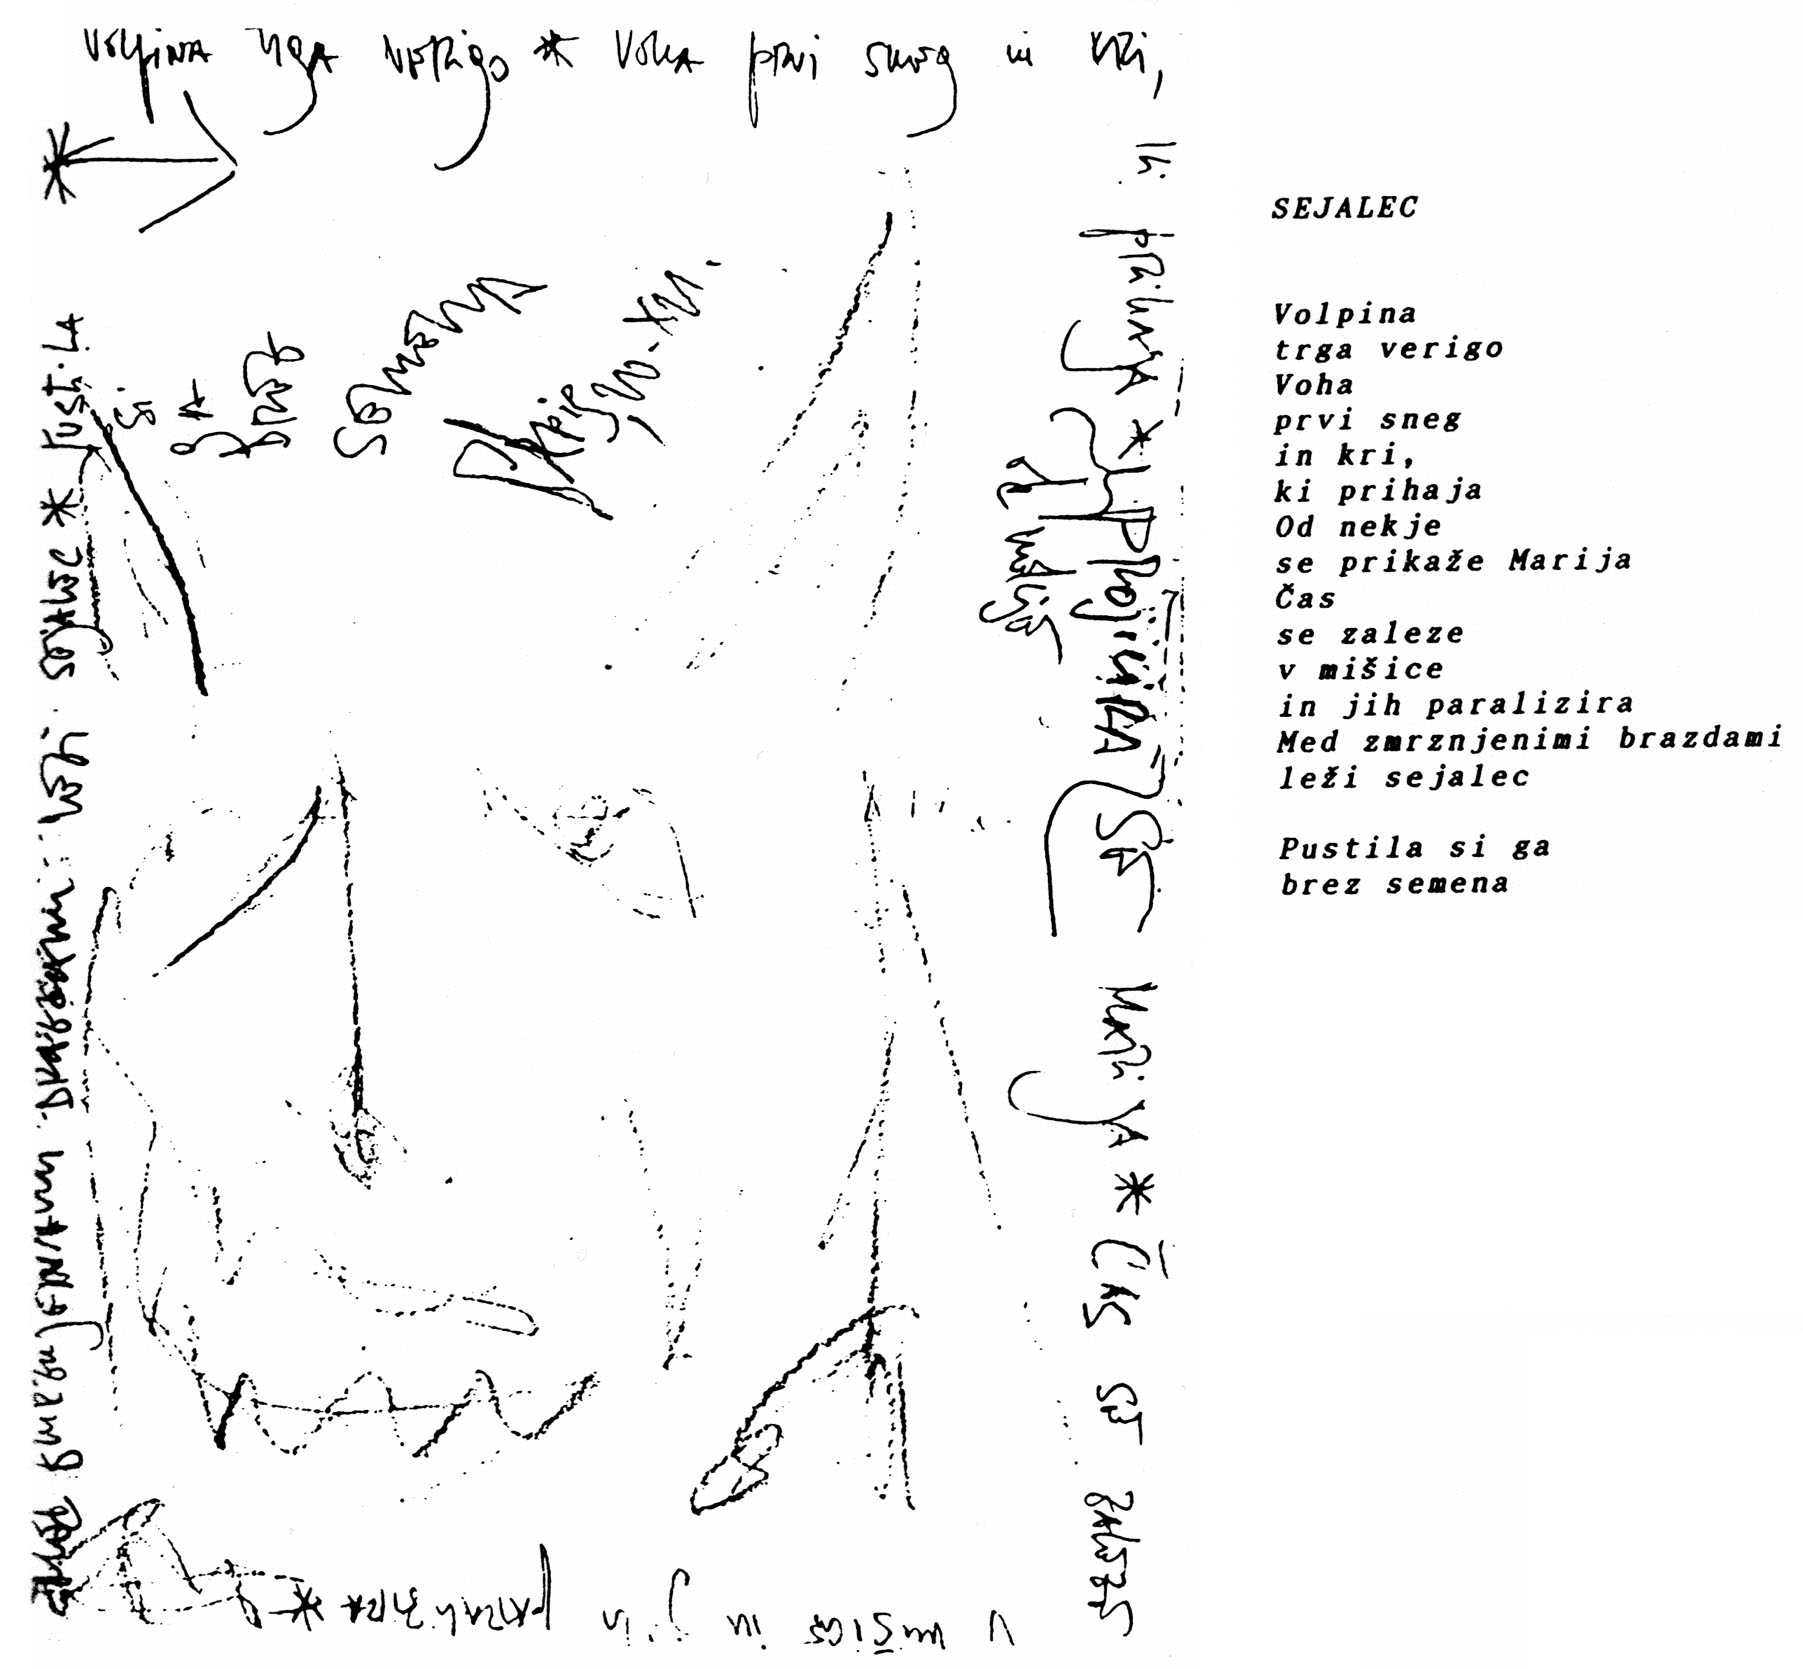 Volpina trga verigo * Voha prvi sneg in kri,
ki prihaja *
PROJICIRA
SE
Marija * Čas se zaleze
v mišice in jih paralizira *
leži sejalec * Pustila
si
ga
brez
semena
SEJALEC
Volpina
trga verigo
Voha
prvi sneg
in kri,
ki prihaja
Od nekje
se prikaže Marija
Čas
se zaleze
v mišice
in jih paralizira
Med zmrznjenimi brazdami
leži sejalec
Pustila si ga
brez semena